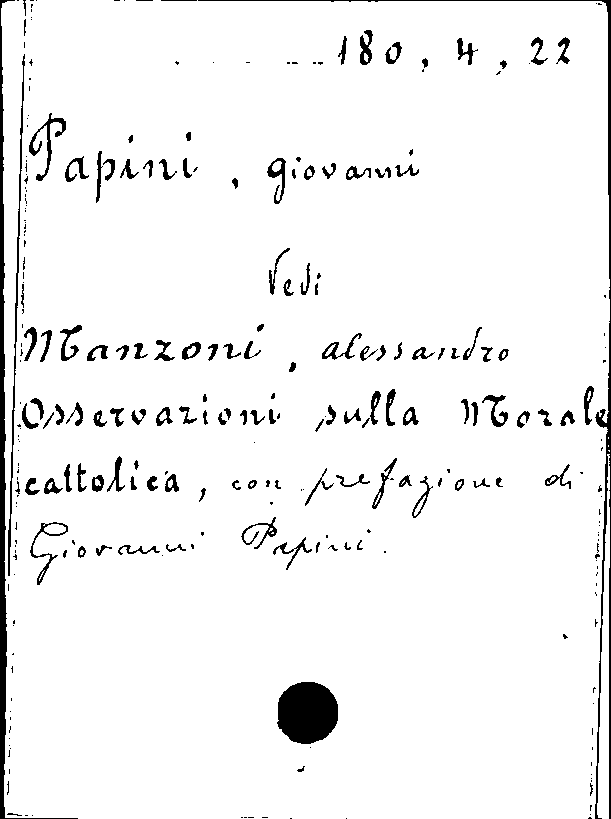 180, 4, 22
Papini, Giovanni
Vedi
Manzoni, Alessandro
Osservazioni sulla Morale
cattolica, con prefazione di
Giovanni Papini.